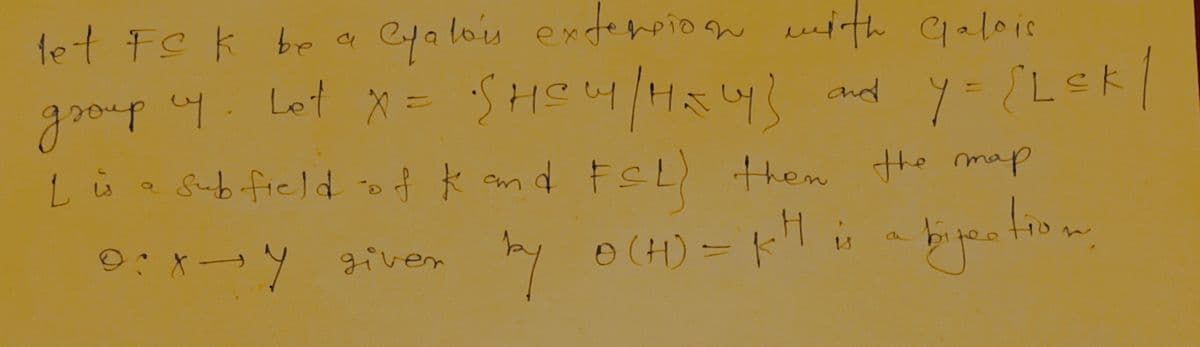 let F ⊆ K be a Galois extension with Galois
group G. Let X = {H ⊆ G / H ≤ G} and Y = {L ⊆ K |
L is a subfield of K and F ⊆ L} then the map
θ: X → Y given by θ(H) = K^H is a bijection.